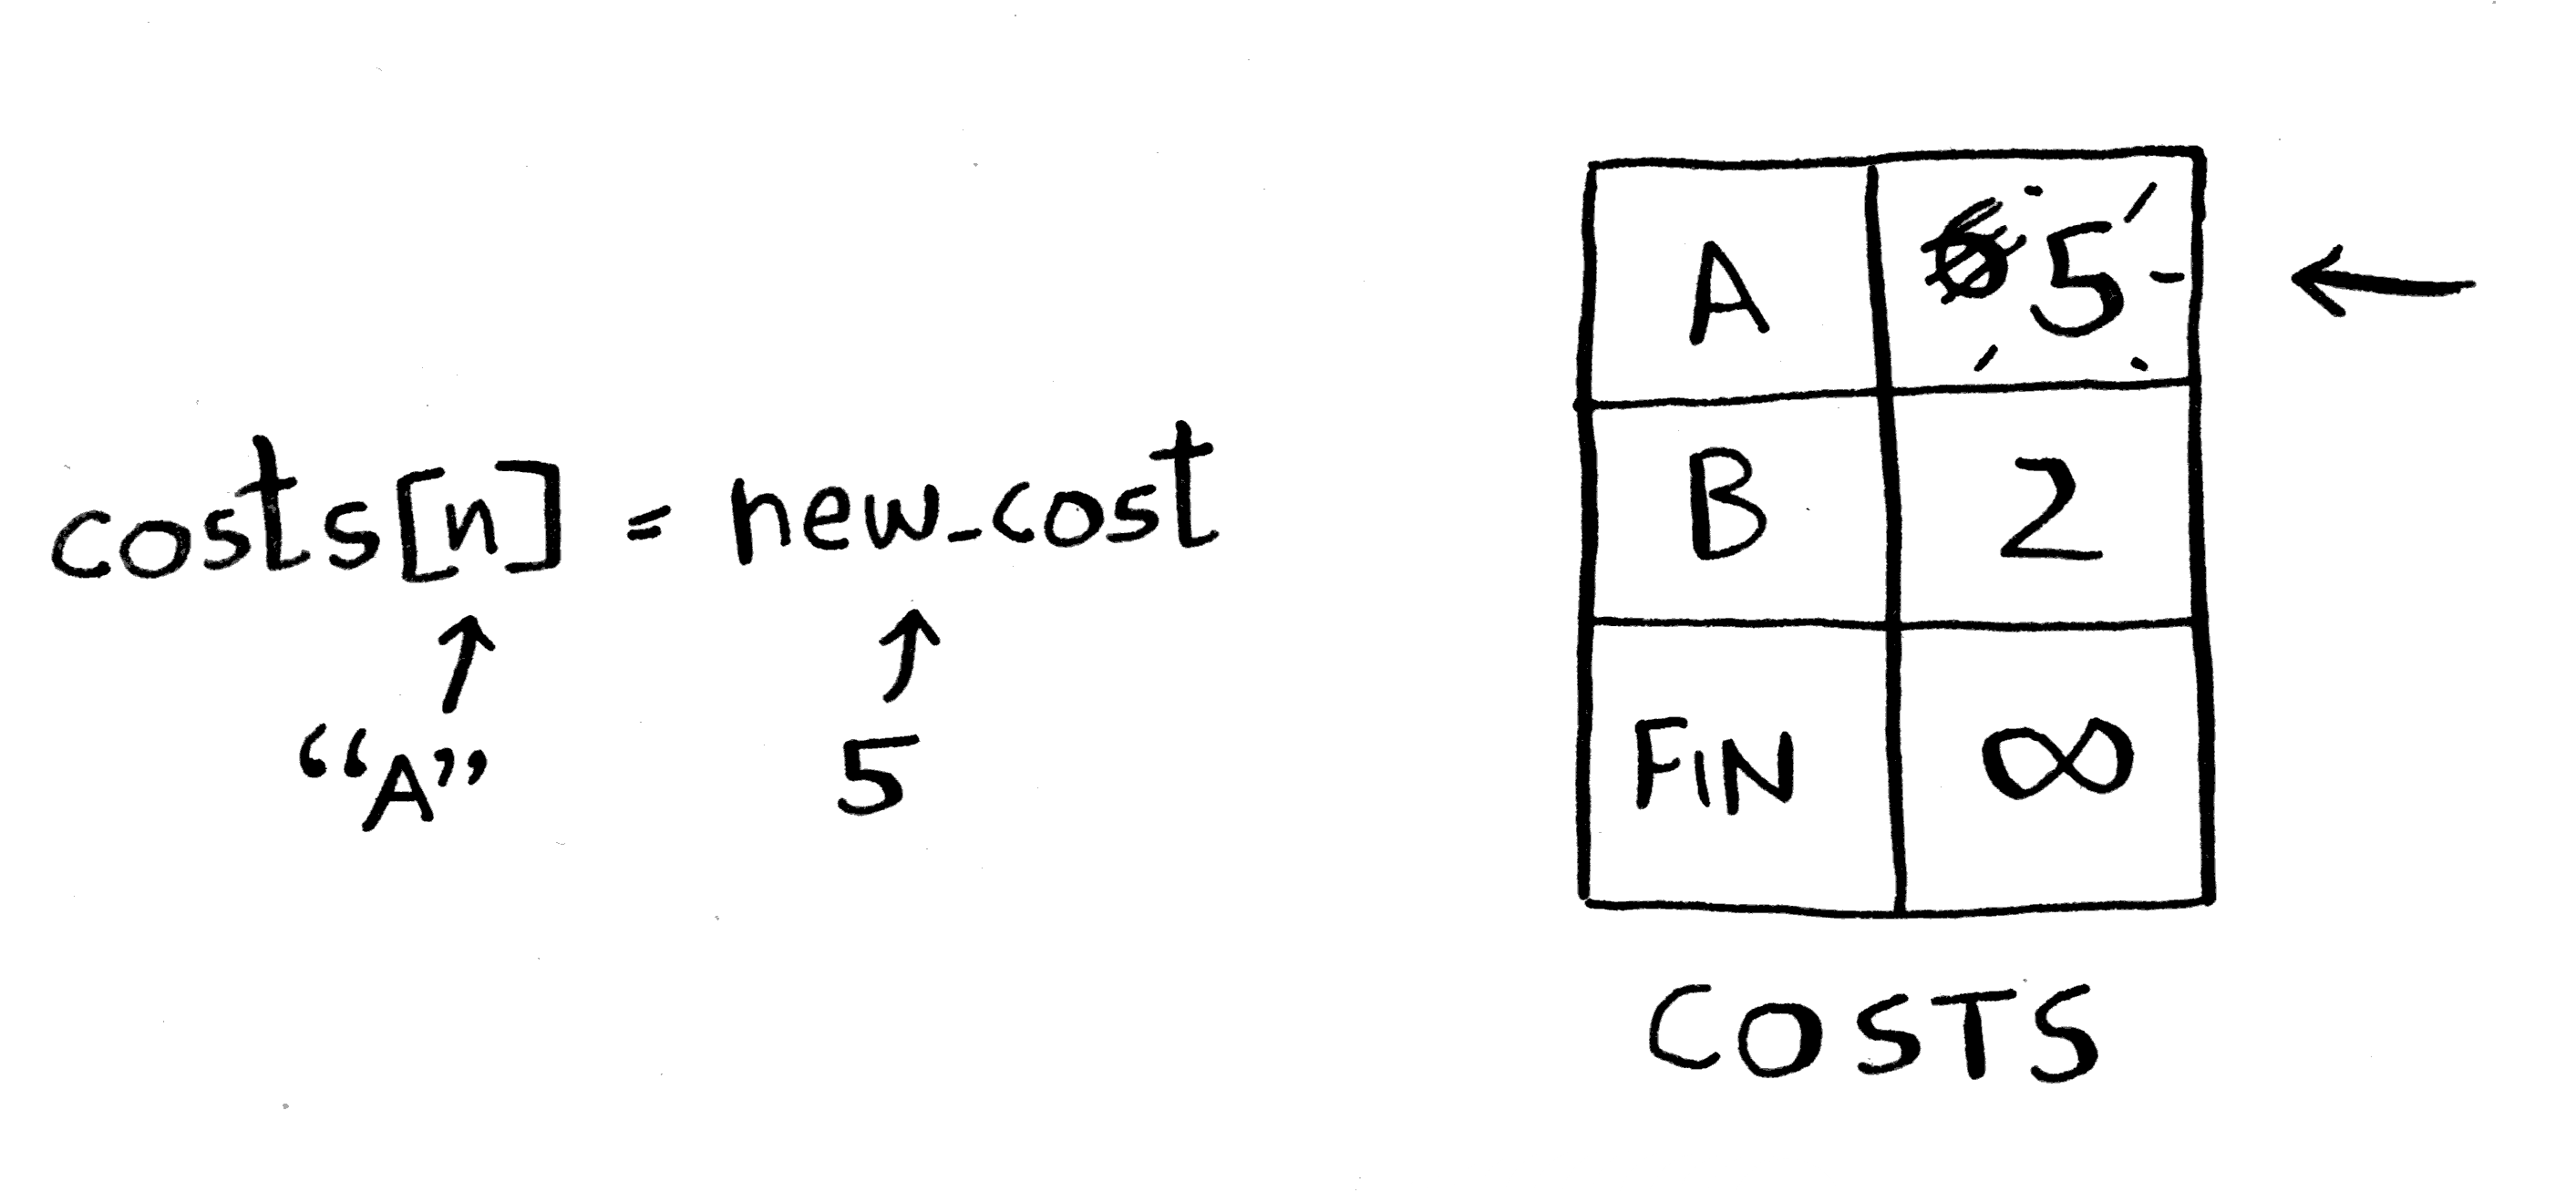 costs[n] = new_cost
“A”
5
A 5
B 2
FIN ∞
COSTS